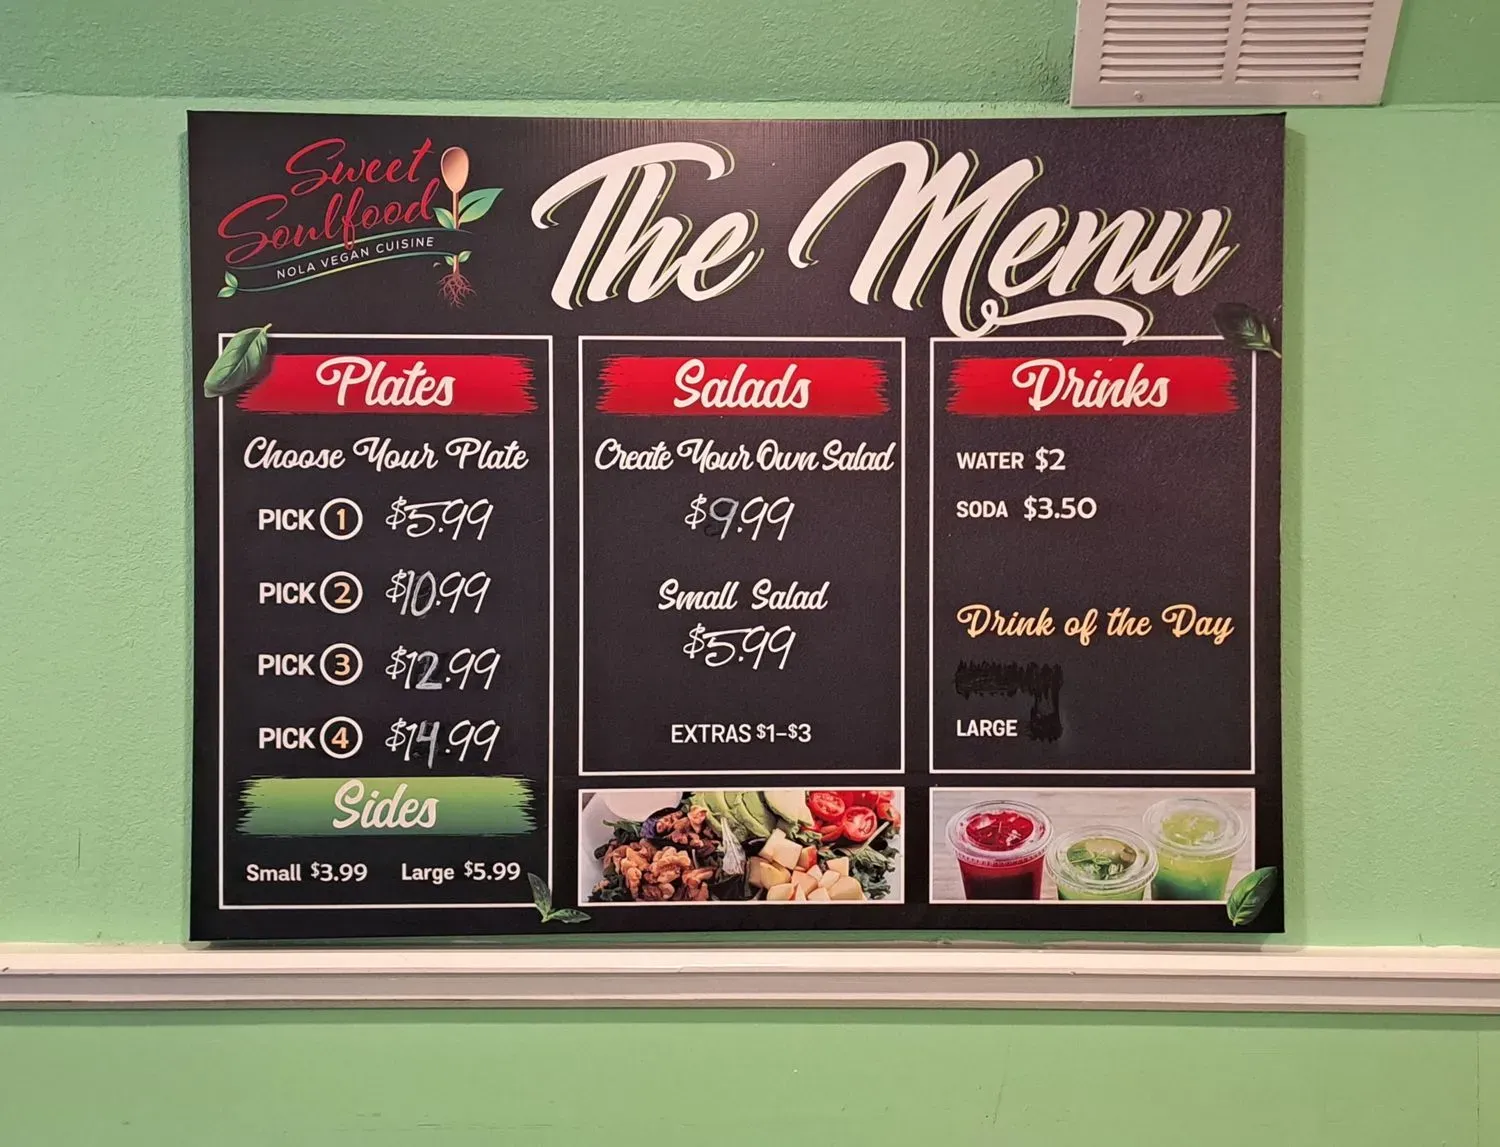 Sweet
Soulfood
NOLA VEGAN CUISINE
The Menu
Plates
Choose Your Plate
PICK 1 $5.99
PICK 2 $10.99
PICK 3 $12.99
PICK 4 $14.99
Sides
Small $3.99 Large $5.99
Salads
Create Your Own Salad
$9.99
Small Salad
$5.99
EXTRAS $1-$3
Drinks
WATER $2
SODA $3.50
Drink of the Day
LARGE